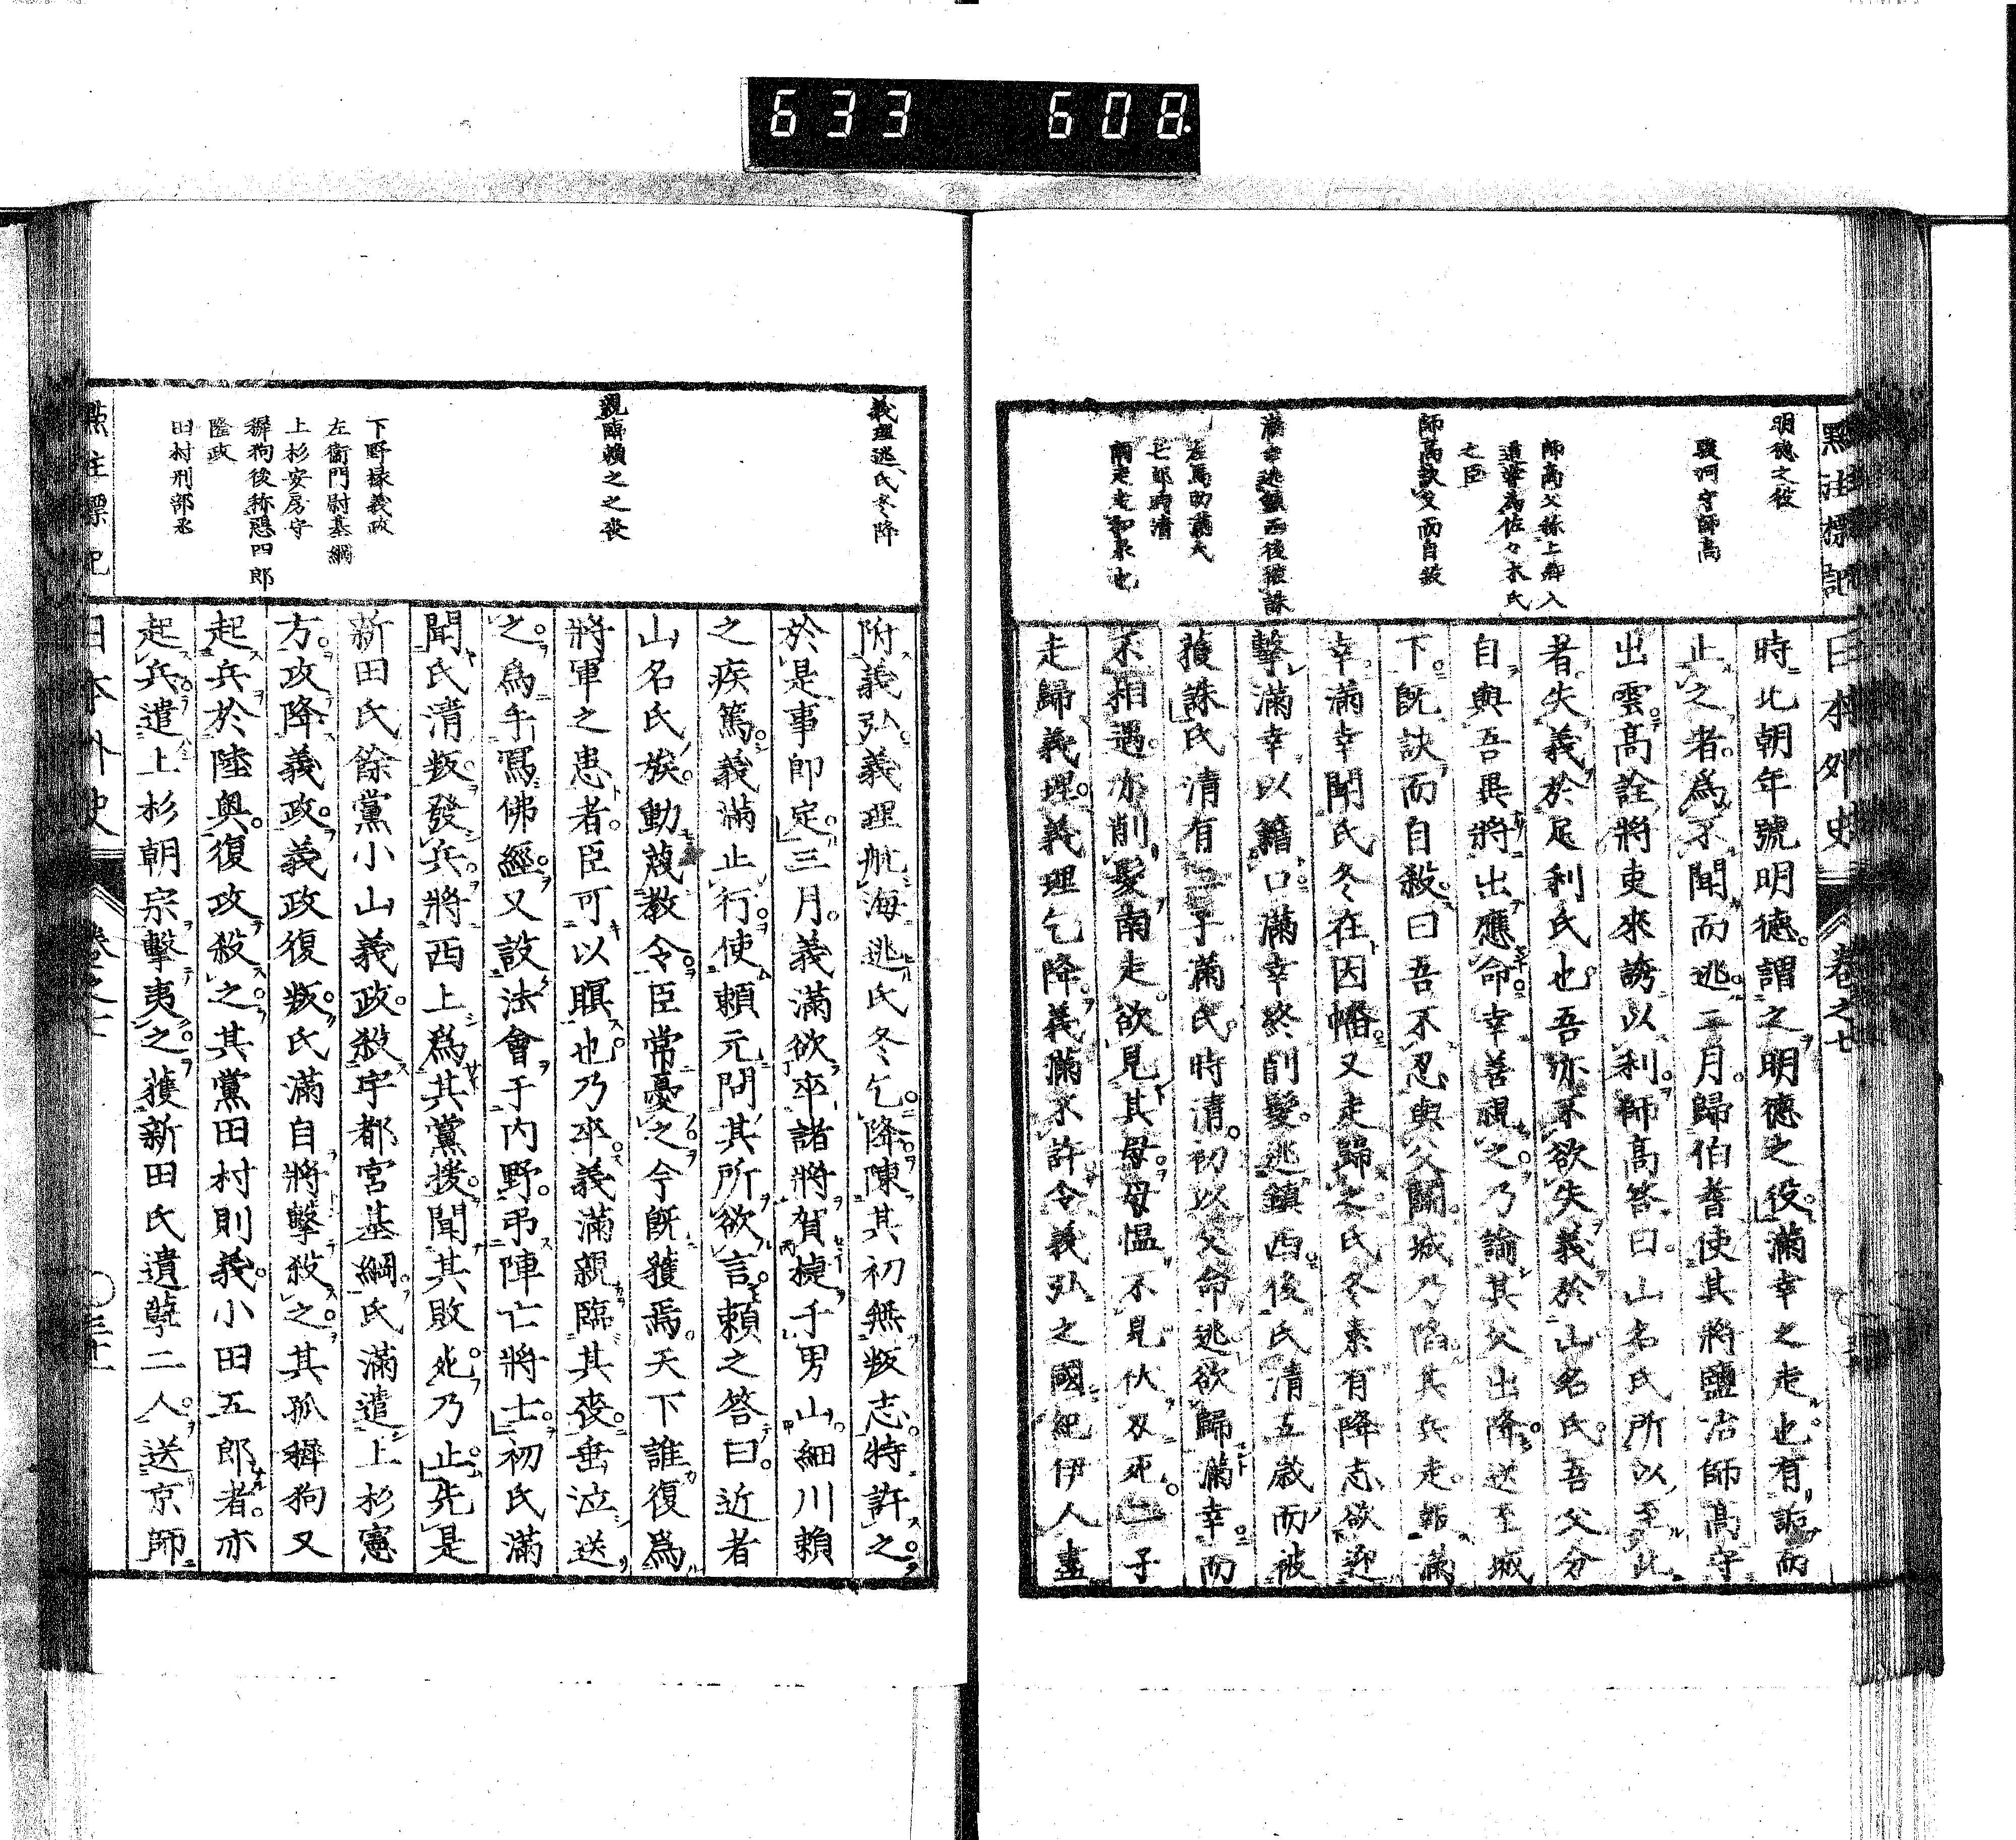 633 608.
點註標記
日本外史
卷之七
明德之役
駿河守師高
師高父祿上齊入
道
為佐々木氏
之臣
師高訣父而自殺
滿幸逃鎮西後被誅
左馬助滿氏
七郎時清
南走走和泉也
時北朝年號明德。謂之明德之役。滿幸之走也。有詬而
止之者。為不聞而逃。二月。歸伯耆使其將鹽冶師高守
出雲高詮將吏來誘以利師高答曰。山名氏所以至此
者。失義於足利氏也。吾亦不欲失義於山名氏。吾父分
自與吾異將出應命。幸善視之。乃諭其父出降。送至城
下。既訣而自殺。曰吾不忍與父鬪城乃陷其兵走。報滿
幸滿幸聞氏冬在因幡。又走歸之。氏冬素有降志。欲迎
擊滿幸以籍口。滿幸終削髮。逃鎮西。後氏清五歲而被
獲誅氏清有二子滿氏。時清。初以父命逃欲歸滿幸而
不相遇。亦削髮南走。欲見其母。母慍不見伏刃死。二子
走歸義理。義理乞降義滿不許令義弘之國紀伊人盡
義理逃、氏冬降
親臨賴之之喪
下野椽義政
左衞門尉基綱
上杉安房守
穉狗後称惡四郎
隆政
田村刑部丞
附義弘。義理航海逃氏冬乞降。陳其初無叛志。特許之。
於是事即定。三月。義滿欲卒諸將賀捷于男山。細川賴
之疾篤。義滿止行。使賴元問其所欲言。賴之答曰。近者
山名氏族。動蔑教令。臣常憂之今既獲焉。天下誰復為
將軍之患者。臣可以瞑也。乃卒。義滿親臨其喪。垂泣送
之。為手寫佛經。又設法會于内野。弔陣亡將士。初氏滿
聞氏清叛發兵。將西上為其黨援。聞其敗死。乃止。先是
新田氏餘黨小山義政。殺宇都宮基綱。氏滿遣上杉憲
方。政降義政。義政復叛。氏滿自將擊殺之。其孤穉狗又
起兵於陸奥。復政殺之。其黨田村則義。小田五郎者。亦
起兵。遣上杉朝宗擊夷之。獲新田氏遺孽二人。送京師
點註標記
日本外史
卷之七
〇三十一